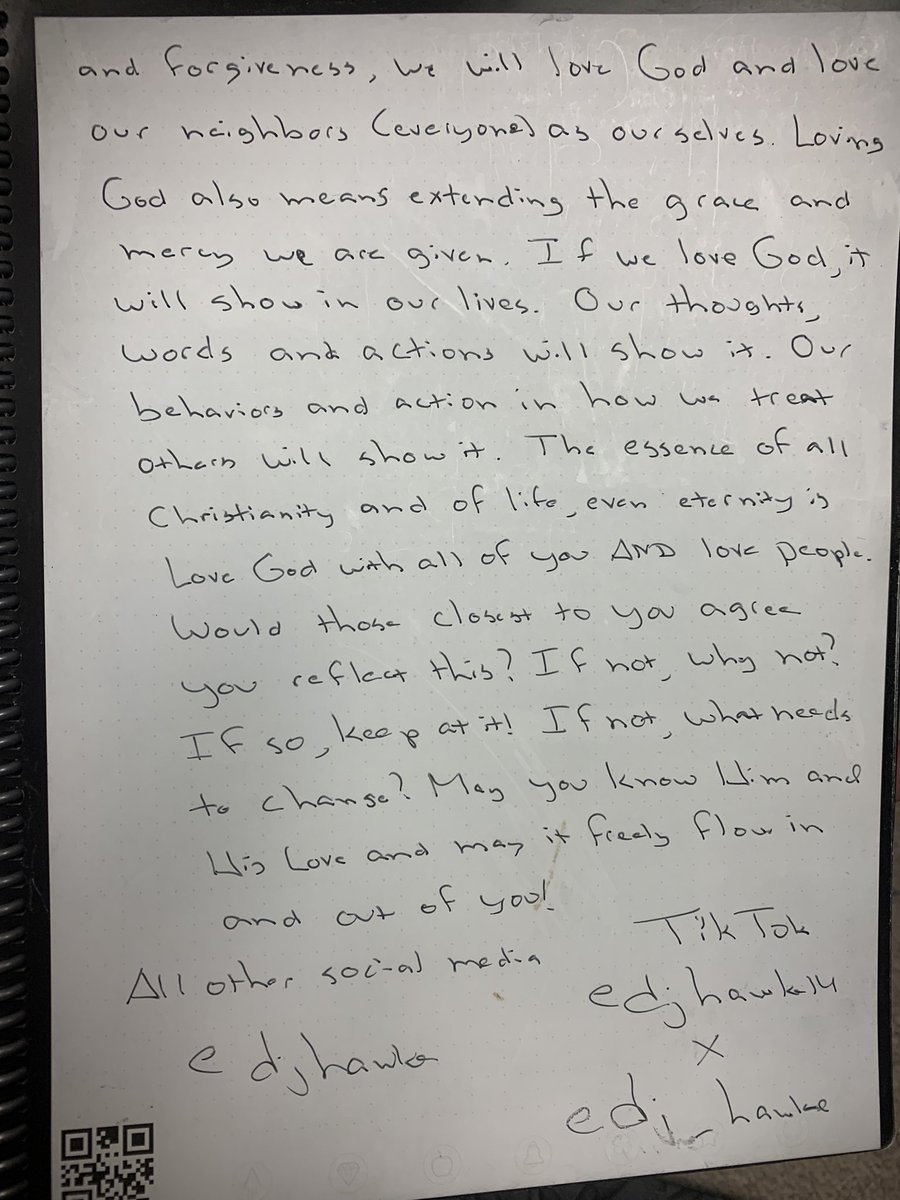 and forgiveness, we will love God and love
our neighbors (everyone) as ourselves. Loving
God also means extending the grace and
mercy we are given. If we love God, it
will show in our lives. Our thoughts,
words and actions will show it. Our
behaviors and action in how we treat
others will show it. The essence of all
Christianity and of life, even eternity is
Love God with all of you AND love people.
Would those closest to you agree
you reflect this? If not, why not?
If so, keep at it! If not, what needs
to change? May you know Him and
His Love and may it freely flow in
and out of you!
All other social media
edjhawke
TikTok
edjhawke14
X
edj_hawke